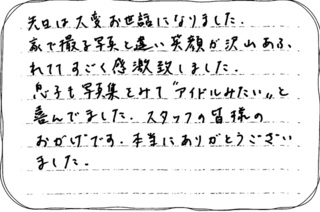 先日は大変お世話になりました.
家で撮る写真と違い笑顔が沢山あふ
れててすごく感激致しました.
息子も写真集をみて"アイドルみたい"と
喜んでました. スタッフの皆様の
おかげです. 本当にありがとうござい
ました.